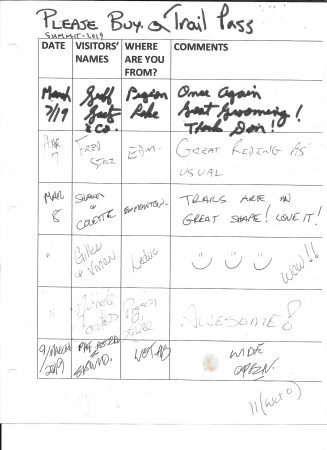 PLEASE BUY a Trail Pass
SUMMIT-2019
DATE VISITORS' NAMES WHERE ARE YOU FROM? COMMENTS
March 7/19
Geoff
& Co.
Pigeon Lake
Once Again
Great Grooming!
Thank Don!
MAR 7
FRED
EDM.
GREAT RIDING AS
USUAL
MAR 8
SHAWN
&
COLETTE
EDMONTON
TRAILS ARE IN
GREAT SHAPE! LOVE IT!
"
Gilles
&
Vivian
Leduc
WOW!!
"
Pigeon
Lake
AWESOME!
9/MARCH
2019
WIDE
OPEN.